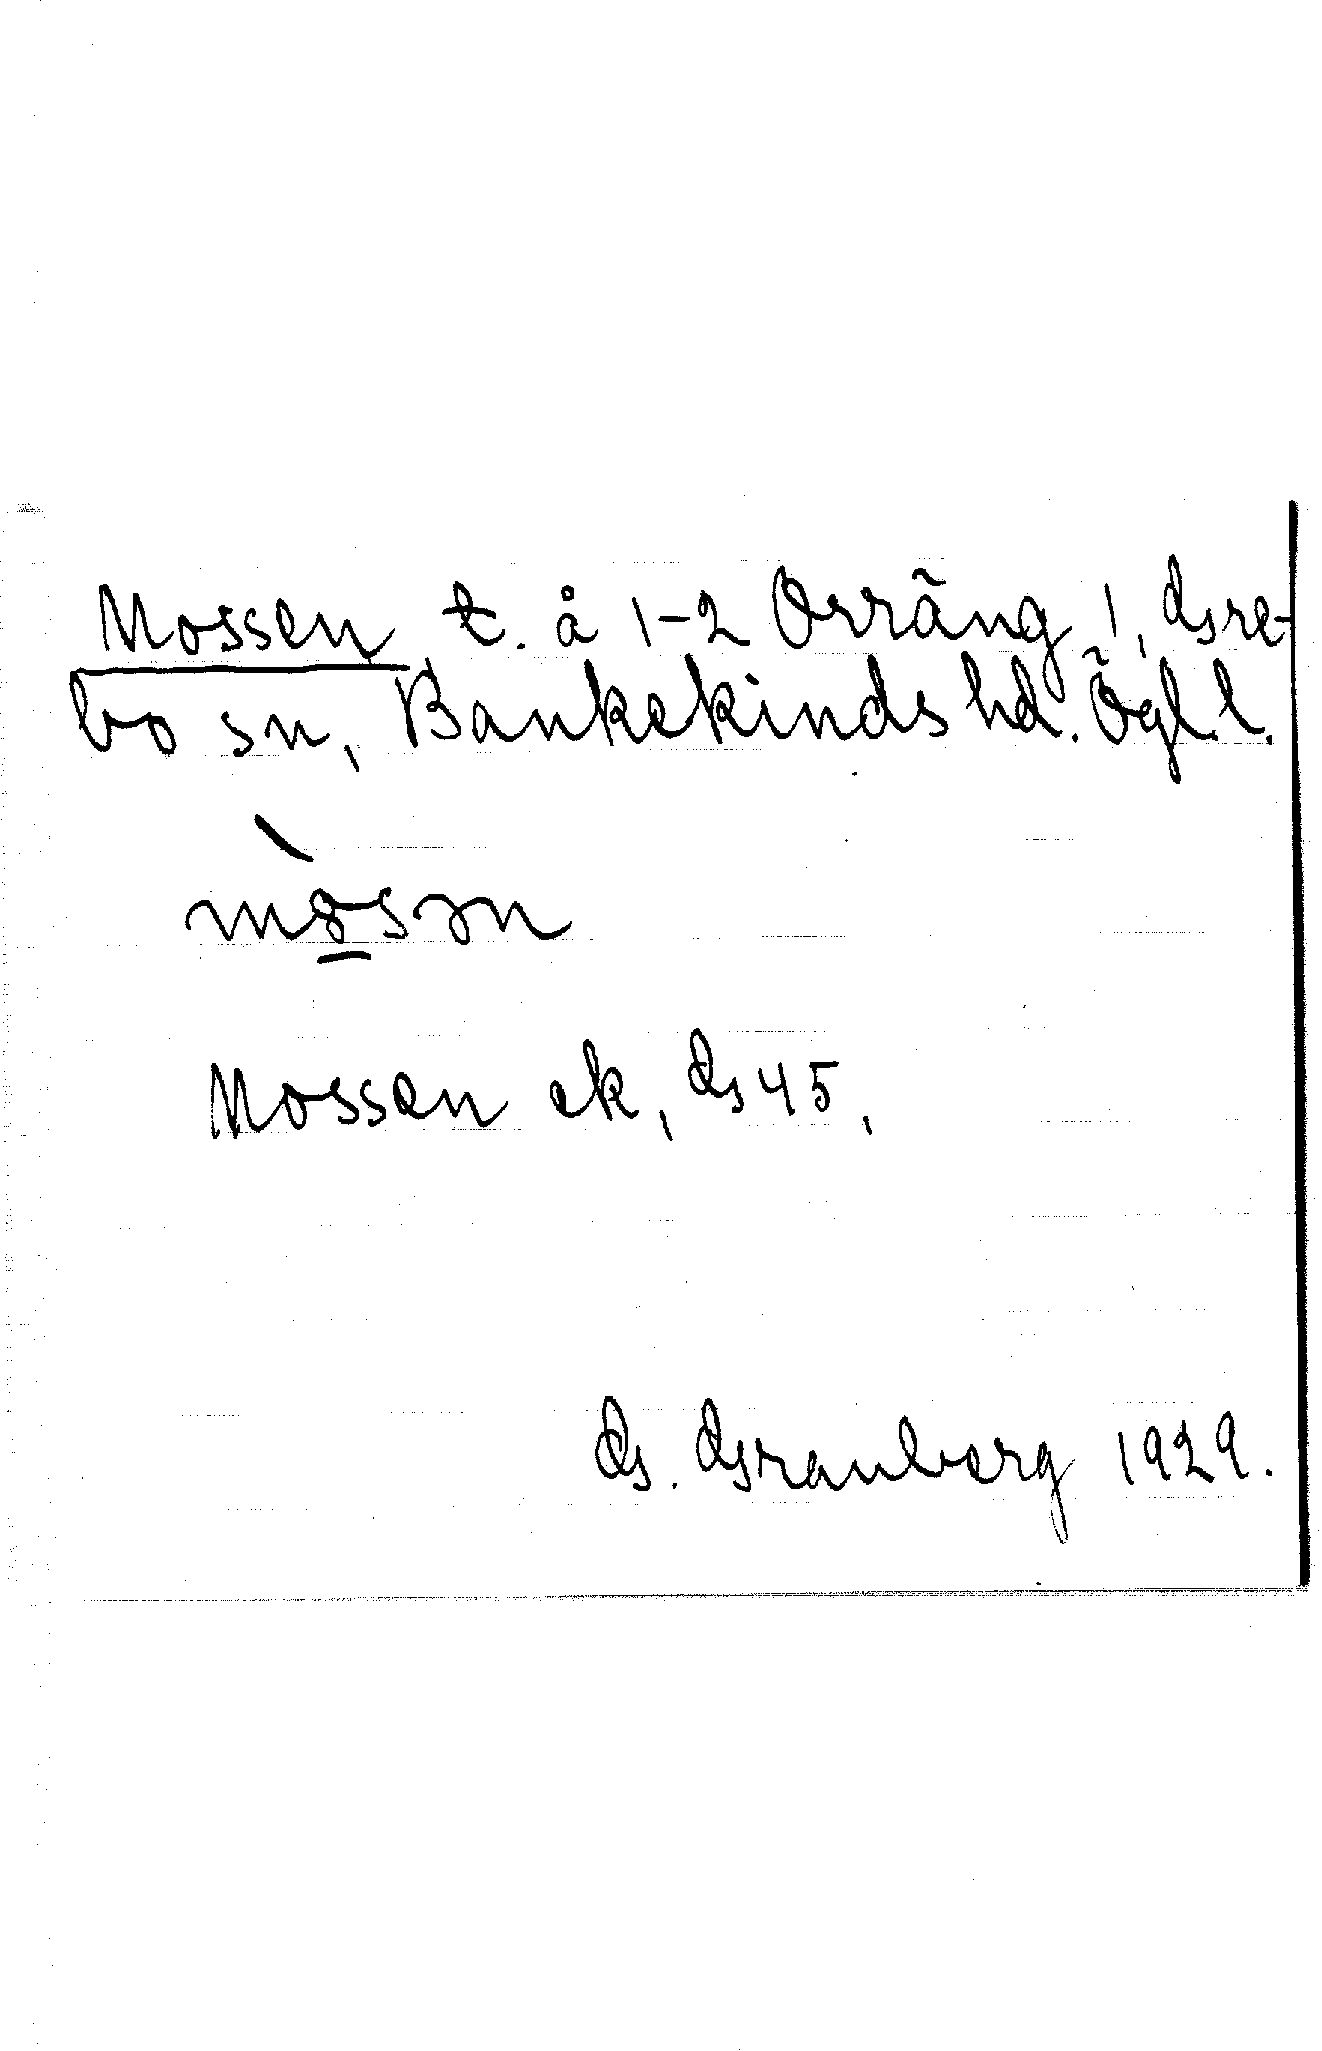 Mossen, t. å 1-2 Orräng 1, Gre-
bo sn, Bankekinds hd. Ögl. l.
mòsən
Mossen ek, G 45,
G. Granberg 1929.